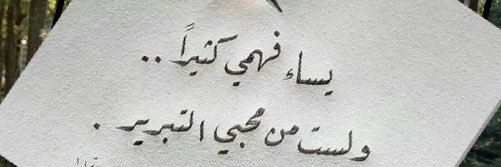 يساء فهمي كثيرًا ..
ولست من محبي التبرير .